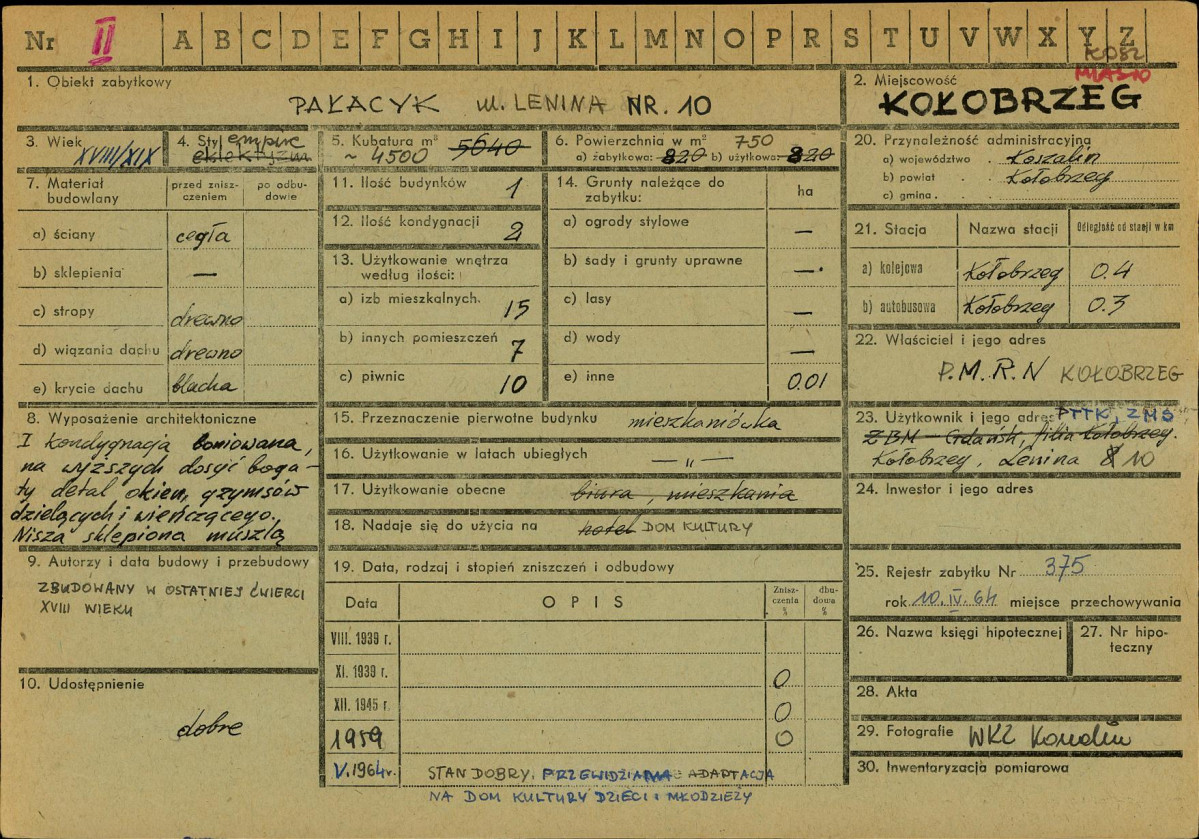 Nr II A B C D E F G H I J K L M N O P R S T U V W X Y Z
KOSZ
MIASTO
1. Obiekt zabytkowy
PAŁACYK ul. LENINA NR. 10
2. Miejscowość
KOŁOBRZEG
3. Wiek XVIII/XIX
4. Styl empire
eklektyzm
5. Kubatura m³ 5640
~ 4500
6. Powierzchnia w m² 750
a) zabytkowa: 820 b) użytkowa: 820
20. Przynależność administracyjna
a) województwo . Koszalin
b) powiat . . Kołobrzeg
c) gmina . . .
7. Materiał budowlany
przed znisz-
czeniem
po odbu-
dowie
a) ściany cegła
b) sklepienia —
c) stropy drewno
d) wiązania dachu drewno
e) krycie dachu blacha
11. Ilość budynków 1
12. Ilość kondygnacji 2
13. Użytkowanie wnętrza
według ilości:
a) izb mieszkalnych. 15
b) innych pomieszczeń 7
c) piwnic 10
14. Grunty należące do
zabytku: ha
a) ogrody stylowe —
b) sady i grunty uprawne —
c) lasy —
d) wody —
e) inne 0.01
21. Stacja Nazwa stacji Odległość od stacji w km
a) kolejowa Kołobrzeg 0.4
b) autobusowa Kołobrzeg 0.3
22. Właściciel i jego adres
P.M.R.N KOŁOBRZEG
8. Wyposażenie architektoniczne
I kondygnacja boniowana,
na wyższych dosyć boga-
ty detal okien, gzymsów
dzielących i wieńczącego.
Nisza sklepiona muszlą
15. Przeznaczenie pierwotne budynku mieszkaniówka
16. Użytkowanie w latach ubiegłych — „ —
17. Użytkowanie obecne biura, mieszkania
18. Nadaje się do użycia na hotel DOM KULTURY
23. Użytkownik i jego adres PTTK, ZMS
ZBM – Gdańsk, filia Kołobrzeg.
Kołobrzeg, Lenina 8 10
24. Inwestor i jego adres
9. Autorzy i data budowy i przebudowy
ZBUDOWANY W OSTATNIEJ ĆWIERCI
XVIII WIEKU
19. Data, rodzaj i stopień zniszczeń i odbudowy
Data OPIS Znisz-
czenia
% dbu-
dowa
%
VIII. 1939 r.
XI. 1939 r. 0
XII. 1945 r. 0
1959 0
V. 1964 r. STAN DOBRY. PRZEWIDZIANA ADAPTACJA
NA DOM KULTURY DZIECI i MŁODZIEŻY
25. Rejestr zabytku Nr 375
rok 10.IV.64 miejsce przechowywania
26. Nazwa księgi hipotecznej
27. Nr hipo-
teczny
10. Udostępnienie
dobre
28. Akta
29. Fotografie WKZ Koszalin
30. Inwentaryzacja pomiarowa